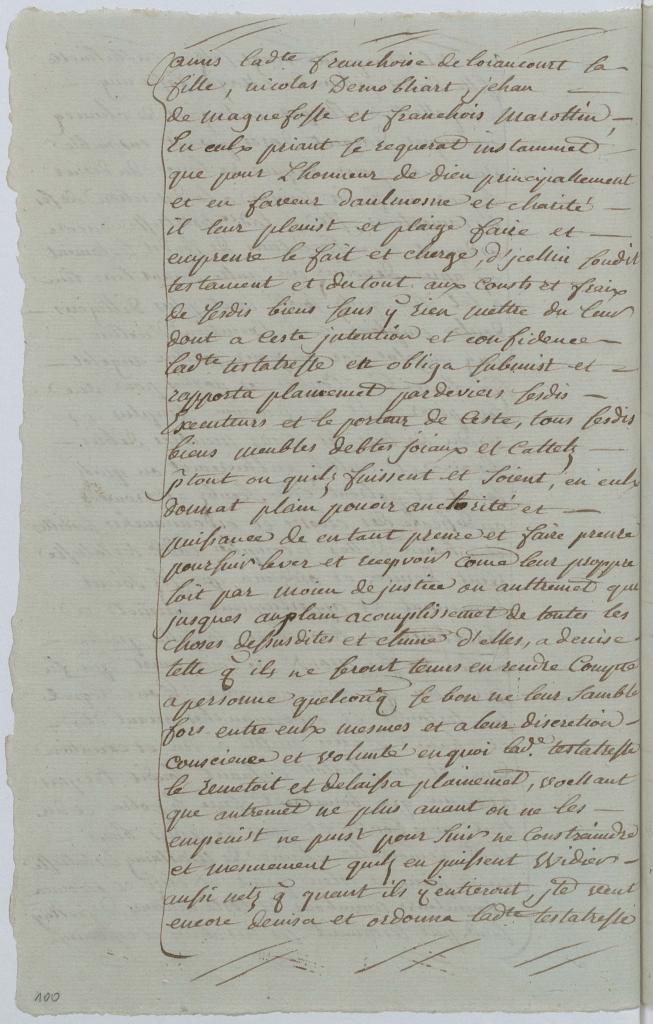 amis ladte franchoise de loiancourt sa
fille, nicolas Demobliart, jehan —
de maquefosse et franchois marottin, —
En eulx priant se requerat instammet
que pour Lhonneur de dieu principallement
et en faveur daulmosne et charité —
il leur pleuist et plaige faire et —
emprenre le fait et cherge, d'jcelluy sondit
testament et du tout aux Consts et fraix
de sesdis biens sans ÿ rien mettre du leur
dont a Ceste jntention et confidence —
ladte testatresse en obliga submist et —
rapporta plainemet pardeviers sesdis —
Executeurs et le porteur de Ceste, tous sesdis
biens meubles debtes joiaux et Cattelz —
ptout ou quilz fuissent et soient, en eulx
donnat plain pouoir auctorité et —
puissance de en tant prenre et faire prenre
poursuir lever et recepvoir Come leur proppre
soit par moien de justice ou aultremet que
jusques auplain acomplissemet de toutes les
choses dessusdites et chune d'elles, a devise
telle q ils ne seront tenus en rendre Compte
a personne quelconq se bon ne leur samble
fors entre eulx mesmes et a leur discretion —
conscience et volunté en quoi lade testatresse
le remetoit et delaissa plainemet, voellant
que autremet ne plus avant on ne les —
empesist ne puist poursuir ne Constraindre
et mesmement quilz en puissent widier —
aussi netz q quant ils ÿ entreront, jte veut
encore devisa et ordonna ladte testatresse
100